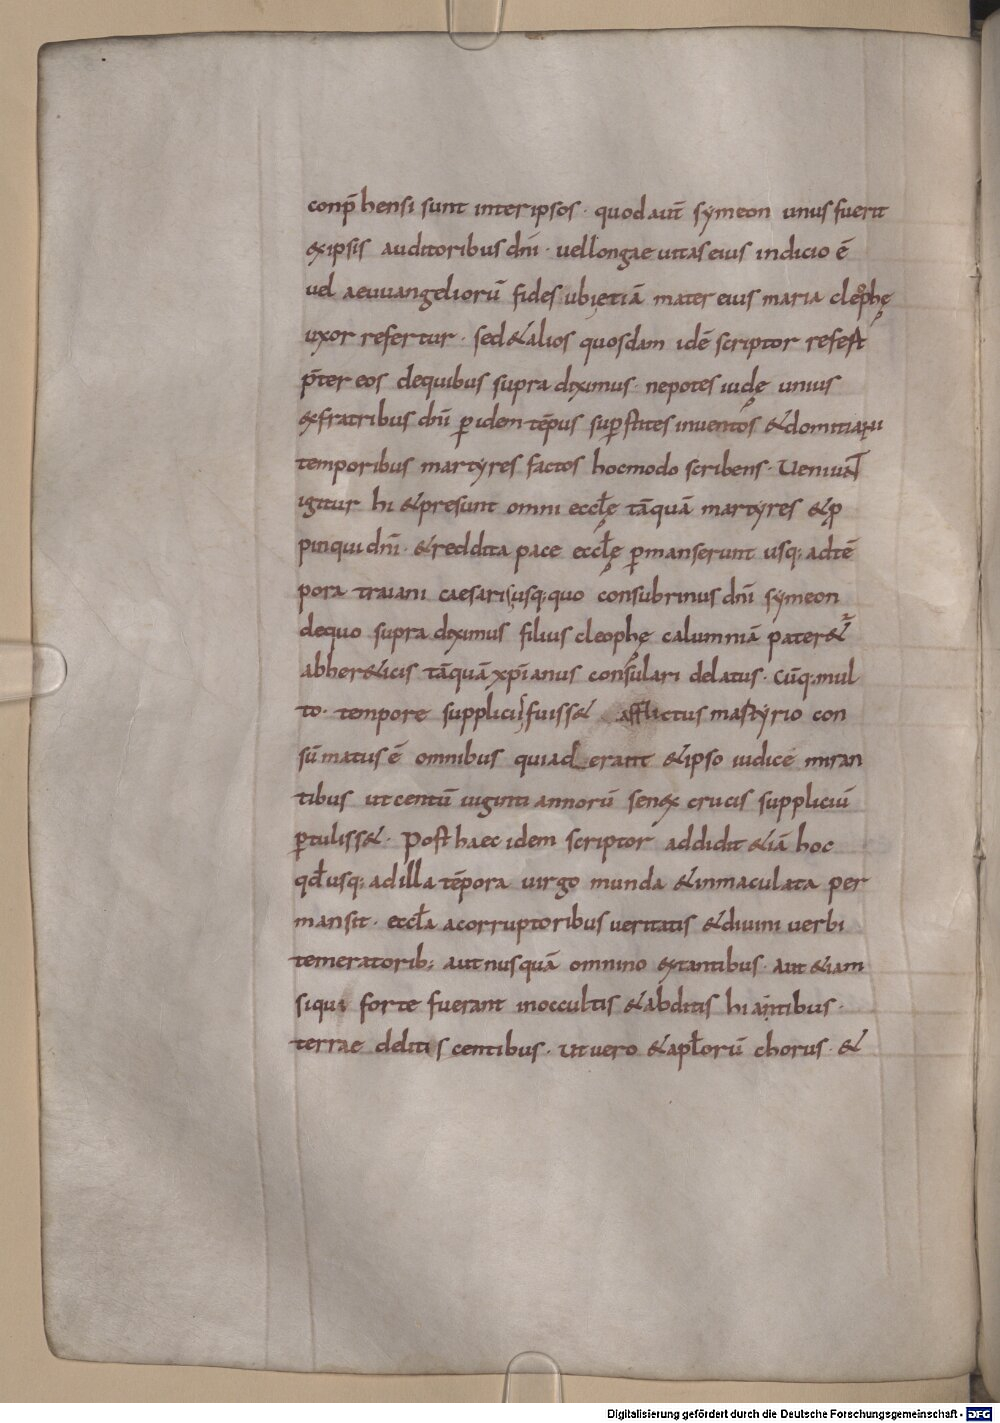 conp̄hensi sunt inter ipsos · quod aut̄ symeon unus fuerit
ex ipsis auditoribus dn̄i · uel longae uitas eius indicio ē
uel aeuuangeliorū fides ubi etiā mater eius maria cleophę
uxor refertur · sed & alios quosdam idē scriptor refert
p̄ter eos de quibus supra diximus · nepotes iudę unius
ex fratribus dn̄i ꝑ idem tēpus suꝑstites inventos & domitiani
temporibus martyres factos hoc modo scribens · Ueniunt
igitur hi & presunt omni eccłę tāquā martyres & ꝓ
pinqui dn̄i · & reddita pace eccłę ꝑmanserunt usq; ad tē
pora traiani caesaris usq; quo consubrinus dn̄i symeon
de quo supra diximus filius cleophę calumniā pater&ur
ab her&icis tāquā xp̄ianus consulari delatus · Cūq; mul
to · tempore supplicii fuiss& afflictus martyrio con
sūmatus ē omnibus qui aderant & ipso iudice miran
tibus ut centū uiginti annorū senex crucis suppliciū
ꝑtuliss& · Post haec idem scriptor addidit &iā hoc
qđ usq; ad illa tēpora uirgo munda & inmaculata per
mansit · eccła a corruptoribus veritatis & divini verbi
temeratorib; aut nusquā omnino extantibus · aut &iam
si qui forte fuerant in occultis & abditis hiantibus ·
terrae delitiscentibus · Ut vero & apłorū chorus · &
Digitalisierung gefördert durch die Deutsche Forschungsgemeinschaft - DFG